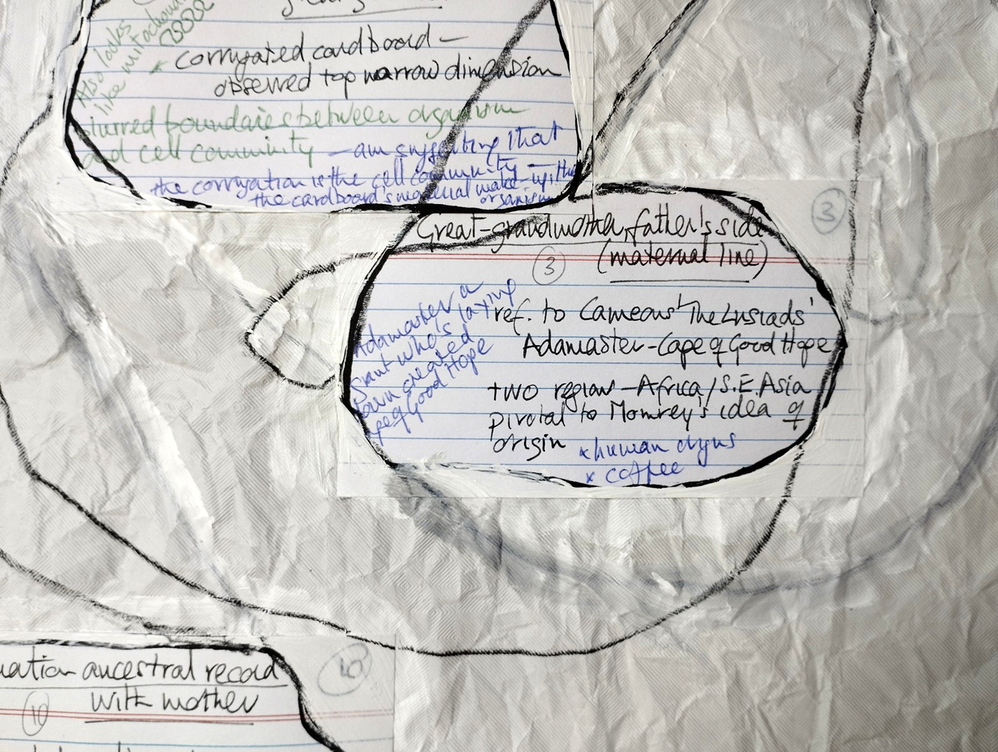 corrugated cardboard –
observed top narrow dimension
Also looks
like
blurred boundaries between organism
and cell community – am suggesting that
the corrugation is the cell community – with
the cardboard's material make-up the
organism
Great-grandmother, father's side
(maternal line)
3
3
ref. to Camoens' 'The Lusiads'
Adamaster – Cape of Good Hope
two regions – Africa / S.E. Asia
pivotal to
idea of
origin
x human
x coffee
Adamaster a
giant who's laying
down created
Cape of Good Hope
ancestral record
with mother
10
10